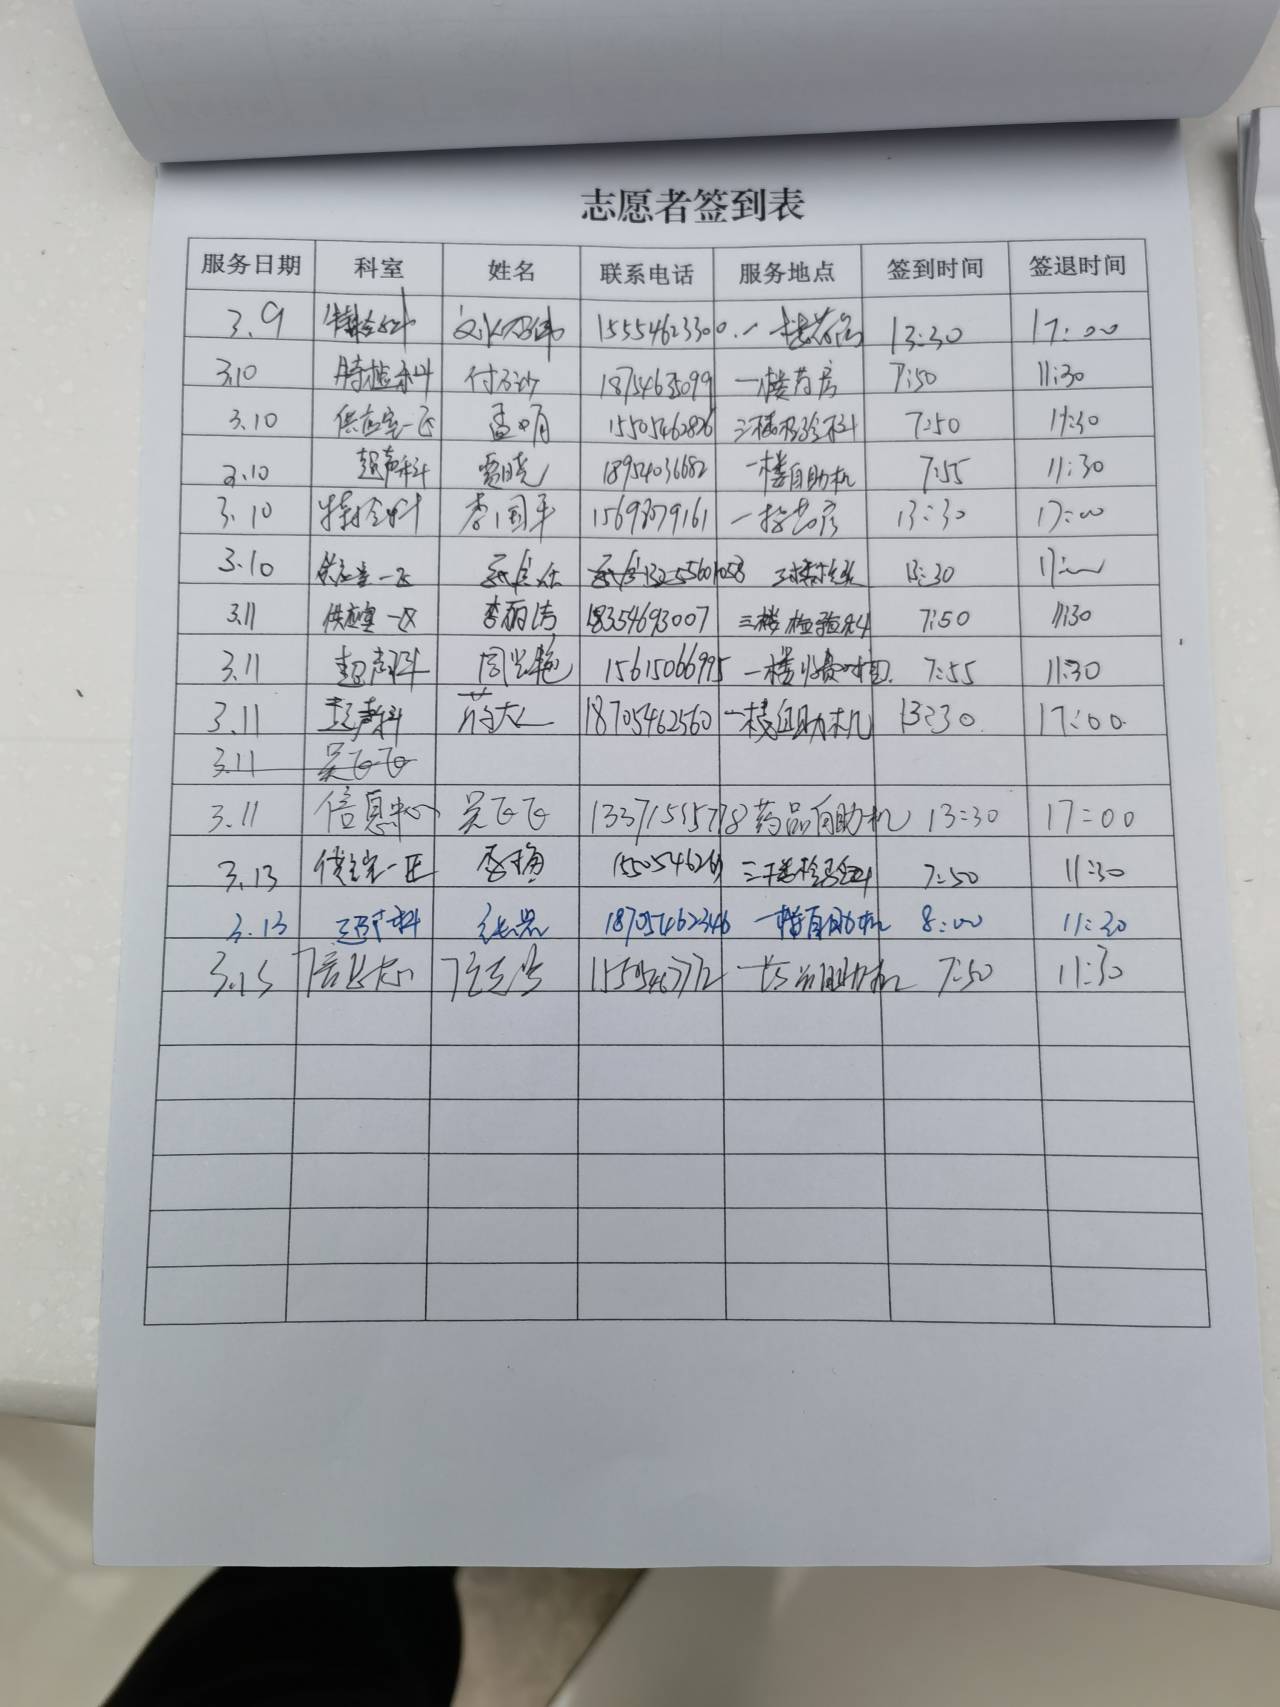 志愿者签到表
服务日期 科室 姓名 联系电话 服务地点 签到时间 签退时间
3.9 15554623300 13:30 17:00
3.10 付 18754635099 一楼药房 7:50 11:30
3.10 供应室一区 孟明 15505462826 三楼检验科 7:50 11:30
3.10 超声科 贾晓 18954036682 一楼自助机 7:55 11:30
3.10 特检科 李国平 15698079161 一楼药房 13:30 17:00
3.10 供应室一区 三楼检验 13:30 17:
3.11 供应室一区 李丽洁 18354693007 三楼检验科 7:50 11:30
3.11 超声科 周兰艳 15615066995 一楼收费 7:55 11:30
3.11 超声科 18705462560 一楼自助机 13:30 17:00
3.11 吴飞飞
3.11 信息中心 吴飞飞 药品自助机 13:30 17:00
3.13 供应室一区 李梅 三楼检验科 7:50 11:30
3.13 超声科 18705462346 一楼自助机 8:00 11:30
3.13 信息中心 自助机 7:50 11:30